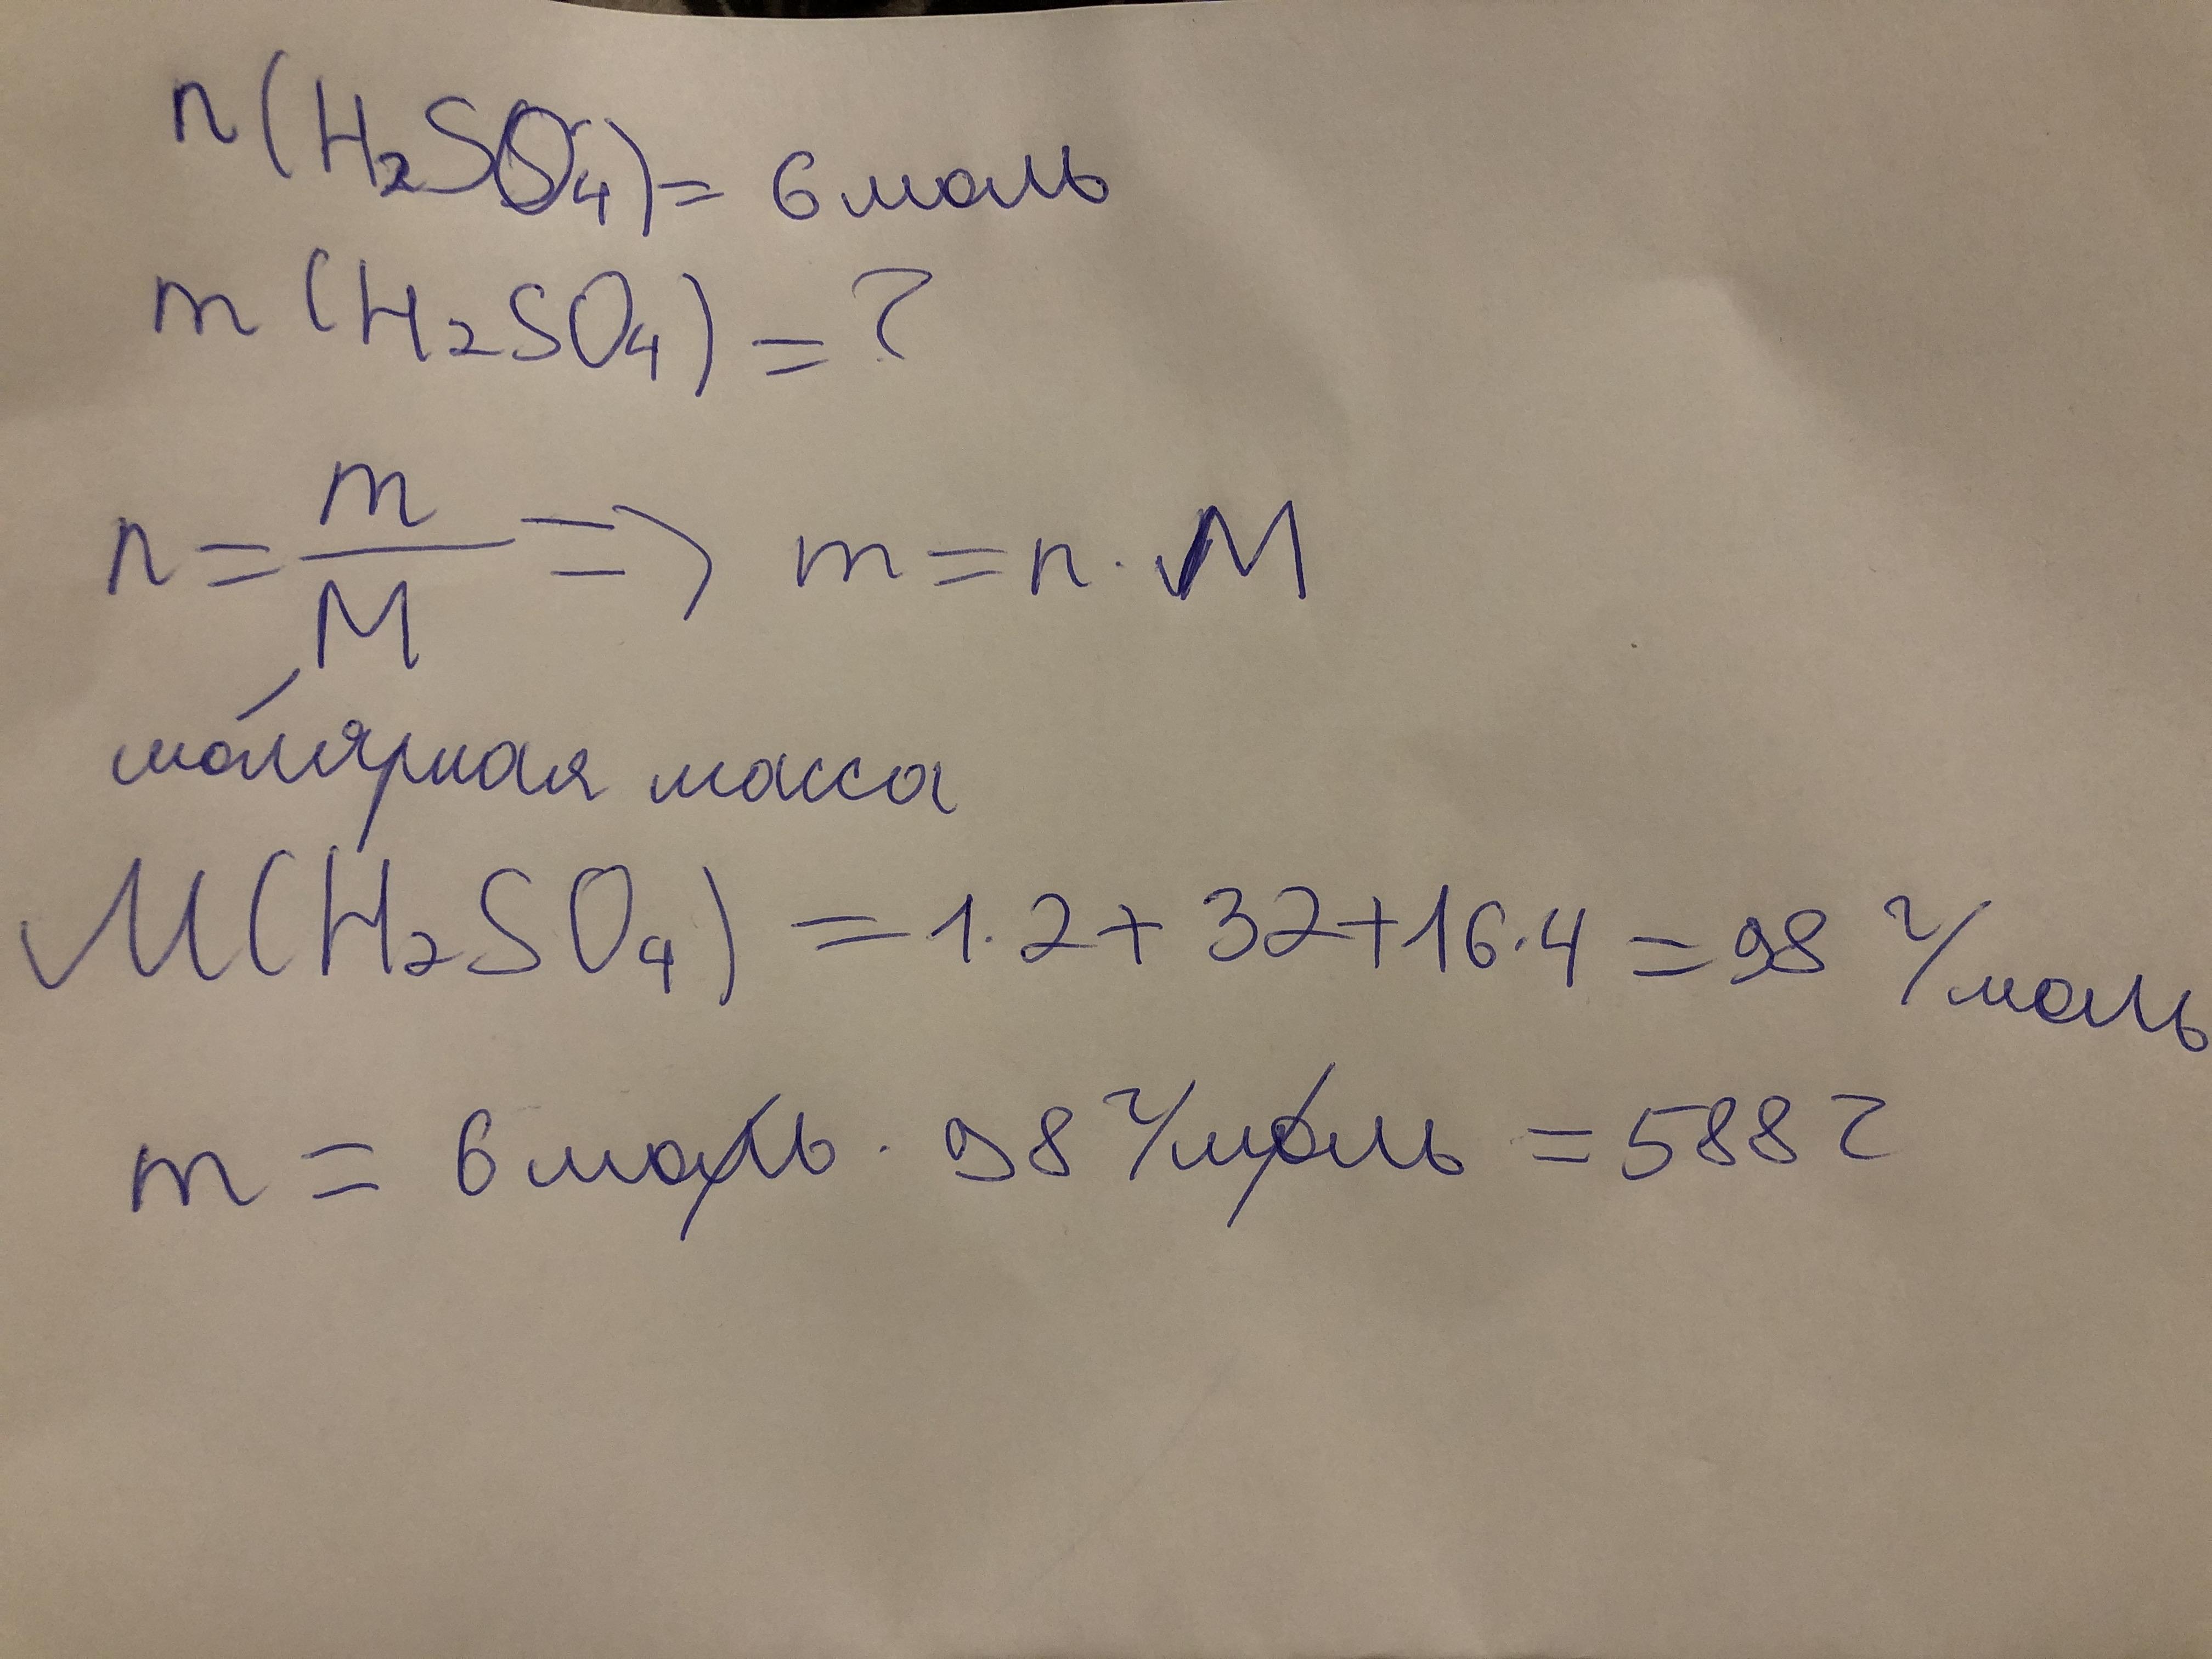 n(H₂SO₄) = 6 моль
m(H₂SO₄) = ?
n = m/M => m = n · M
молярная масса
M(H₂SO₄) = 1·2 + 32 + 16·4 = 98 г/моль
m = 6 моль · 98 г/моль = 588 г